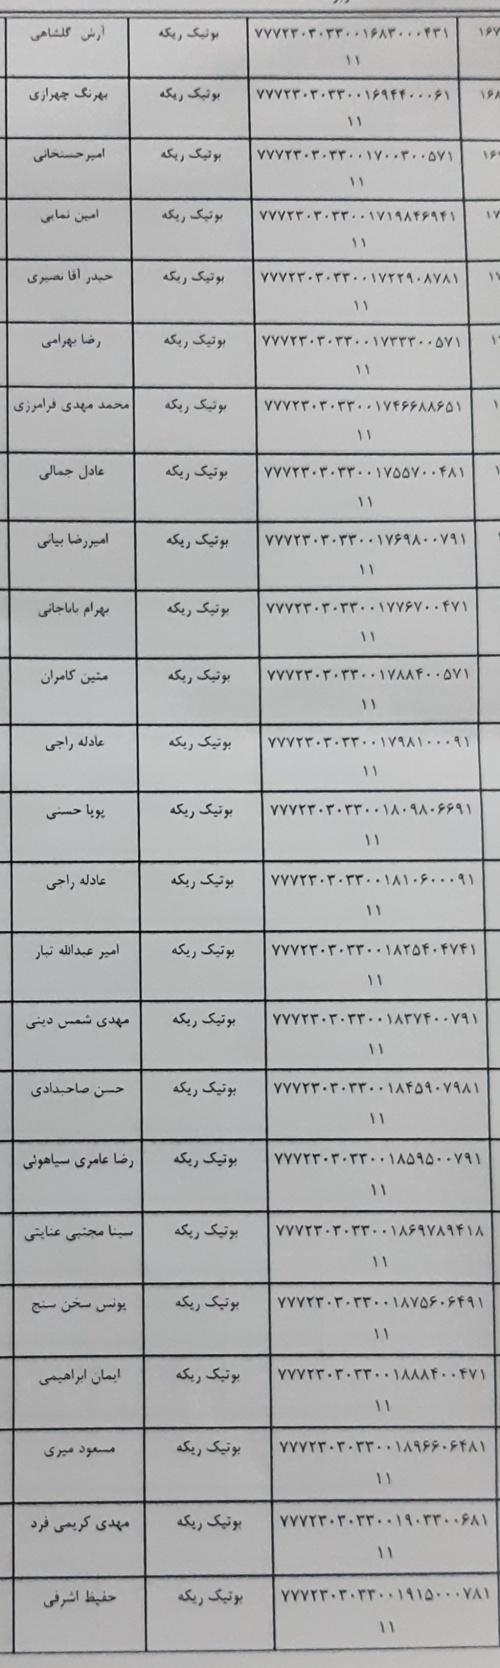 ۱۶۷ ۷۷۷۲۳۰۳۰۳۳۰۰۱۶۸۳۰۰۰۴۳۱ بوتیک ریکه آرش گلشاهی
۱۱
۱۶۸ ۷۷۷۲۳۰۳۰۳۳۰۰۱۶۹۴۴۰۰۰۶۱ بوتیک ریکه بهرنگ چهرازی
۱۱
۷۷۷۲۳۰۳۰۳۳۰۰۱۷۰۰۳۰۰۵۷۱ بوتیک ریکه امیرحسنخانی
۱۱
۷۷۷۲۳۰۳۰۳۳۰۰۱۷۱۹۸۴۶۹۴۱ بوتیک ریکه امین نمایی
۱۱
۷۷۷۲۳۰۳۰۳۳۰۰۱۷۲۲۹۰۸۷۸۱ بوتیک ریکه حیدر آقا نصیری
۱۱
۷۷۷۲۳۰۳۰۳۳۰۰۱۷۳۳۳۰۰۵۷۱ بوتیک ریکه رضا بهرامی
۱۱
۷۷۷۲۳۰۳۰۳۳۰۰۱۷۴۶۶۸۸۶۵۱ بوتیک ریکه محمد مهدی فرامرزی
۱۱
۷۷۷۲۳۰۳۰۳۳۰۰۱۷۵۵۷۰۰۴۸۱ بوتیک ریکه عادل جمالی
۱۱
۷۷۷۲۳۰۳۰۳۳۰۰۱۷۶۹۸۰۰۷۹۱ بوتیک ریکه امیررضا بیانی
۱۱
۷۷۷۲۳۰۳۰۳۳۰۰۱۷۷۶۷۰۰۴۷۱ بوتیک ریکه بهرام باباجانی
۱۱
۷۷۷۲۳۰۳۰۳۳۰۰۱۷۸۸۴۰۰۵۷۱ بوتیک ریکه متین کامران
۱۱
۷۷۷۲۳۰۳۰۳۳۰۰۱۷۹۸۱۰۰۰۹۱ بوتیک ریکه عادله راجی
۱۱
۷۷۷۲۳۰۳۰۳۳۰۰۱۸۰۹۸۰۶۶۹۱ بوتیک ریکه پویا حسنی
۱۱
۷۷۷۲۳۰۳۰۳۳۰۰۱۸۱۰۶۰۰۰۹۱ بوتیک ریکه عادله راجی
۱۱
۷۷۷۲۳۰۳۰۳۳۰۰۱۸۲۵۴۰۴۷۴۱ بوتیک ریکه امیر عبدالله تبار
۱۱
۷۷۷۲۳۰۳۰۳۳۰۰۱۸۳۷۴۰۰۷۹۱ بوتیک ریکه مهدی شمس دینی
۱۱
۷۷۷۲۳۰۳۰۳۳۰۰۱۸۴۵۹۰۷۹۸۱ بوتیک ریکه حسن صاحبدادی
۱۱
۷۷۷۲۳۰۳۰۳۳۰۰۱۸۵۹۵۰۰۷۹۱ بوتیک ریکه رضا عامری سیاهوئی
۱۱
۷۷۷۲۳۰۳۰۳۳۰۰۱۸۶۹۷۸۹۴۱۸ بوتیک ریکه سینا مجتبی عنایتی
۱۱
۷۷۷۲۳۰۳۰۳۳۰۰۱۸۷۵۶۰۶۴۹۱ بوتیک ریکه یونس سخن سنج
۱۱
۷۷۷۲۳۰۳۰۳۳۰۰۱۸۸۸۴۰۰۴۷۱ بوتیک ریکه ایمان ابراهیمی
۱۱
۷۷۷۲۳۰۳۰۳۳۰۰۱۸۹۶۶۰۶۴۸۱ بوتیک ریکه مسعود میری
۱۱
۷۷۷۲۳۰۳۰۳۳۰۰۱۹۰۳۳۰۰۶۸۱ بوتیک ریکه مهدی کریمی فرد
۱۱
۷۷۷۲۳۰۳۰۳۳۰۰۱۹۱۵۰۰۰۷۸۱ بوتیک ریکه حفیظ اشرفی
۱۱